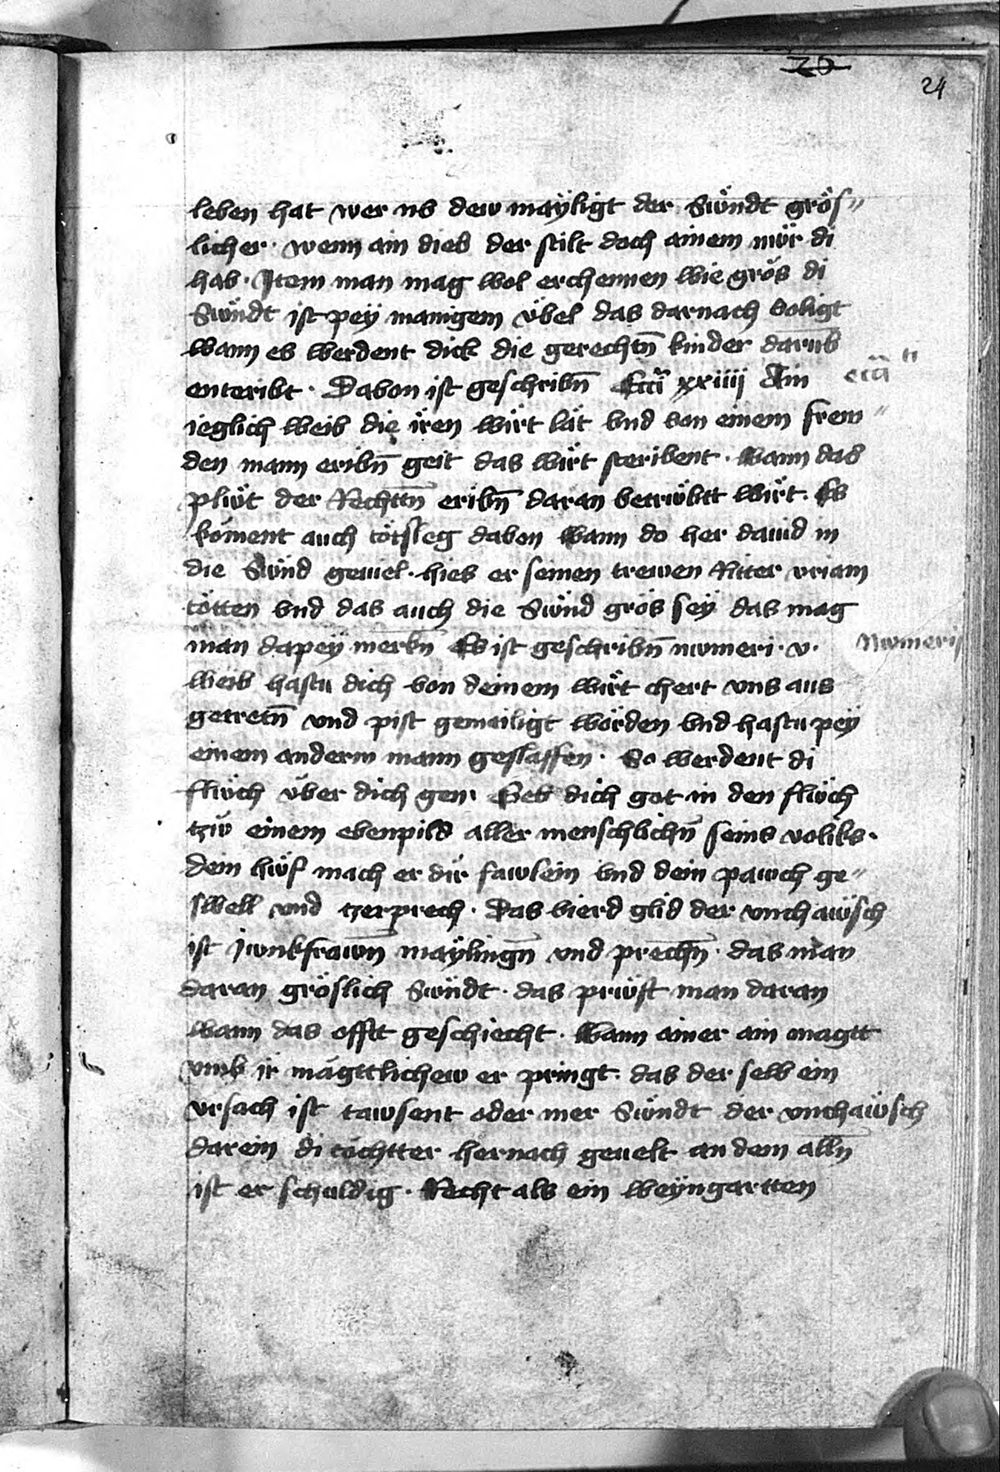 26
24
leben hat wer ub dew mäyligt der Sündt grös〃
licher · wenn ain dieb der stilt doch ainem nür di
hab · Item man mag wol erchennen wie grös di
Sündt ist peÿ manigem v̈bel das darnach voligt
wann es werdent dick die gerechtn̄ kinder darūb
enteribt · Davon ist geschribn̄ Ecc̄i xxiiii Ain
ecc̄i
ieglich weib die iren wirt lät vnd von einem frem〃
den mann eribn̄ geit das wirt steribent · wann das
plüt der Rechttn̄ eribn̄ daran betrübtt wirt · Es
köment auch tötsleg davon wann do her dauid in
die Sünd geuel · hies er seinen trewen Ritter vriam
tötten vnd das auch die Sünd grös seÿ das mag
man dapeÿ merkn̄ Es ist geschribn̄ numeri · v ·
Numeri
weib hastu dich von deinem wirt chert vns aus
getretn̄ vnd pist gemailigt worden vnd hastu peÿ
einem anderm mann geslaffen · So werdent di
flüch v̈ber dich gen Geb dich got in den flüch
tzü einem ebenpild aller menschlichn̄ seins voliks ·
dein hüf mach er dir fawlein vnd dein pawch ge〃
swell vnd tzerprech · Das vierd glid der vnchawsch
ist Junkfrawn̄ mäylingn̄ vnd prechn̄ · das man
daran gröslich Sündt · das prüft man daran
wann das offtt geschiecht · Wann ainer ain magtt
vmb ir mägttlichew er pringt · das der selb ein
vrsach ist tawsent oder mer Sündt der vnchawsch
darein di töchtter hernach geuelt an dem alln̄
ist er schuldig · Recht als ein weÿngartten